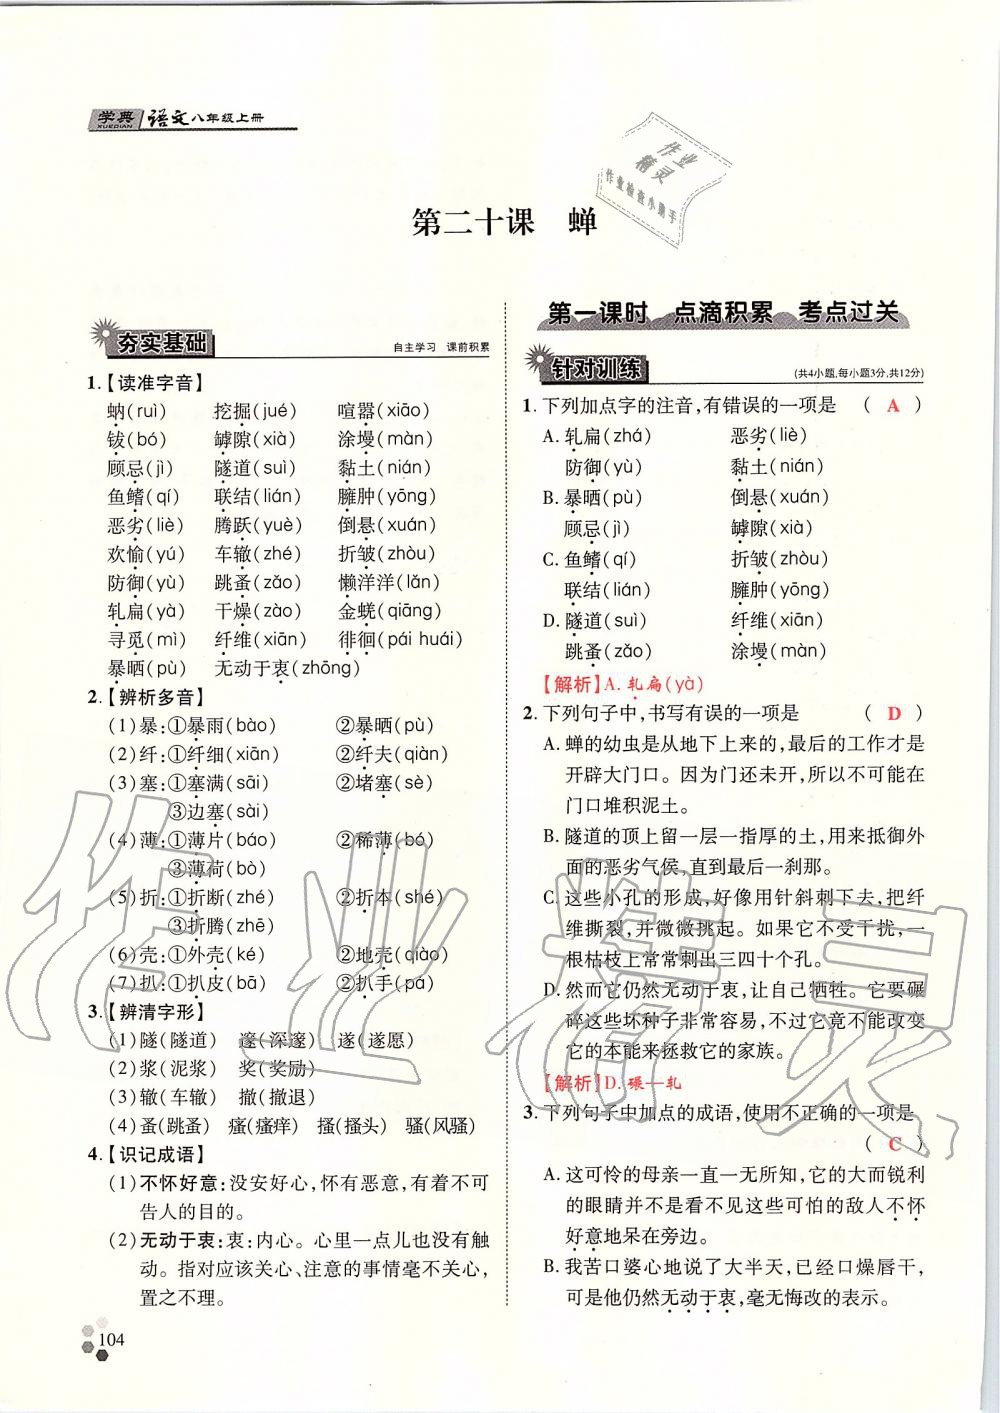 学典 XUEDIAN 语文八年级上册
作业精灵
作业检查小助手
第二十课 蝉
夯实基础
自主学习 课前积累
1.【读准字音】
蚋(ruì) 挖掘(jué) 喧嚣(xiāo)
钹(bó) 罅隙(xià) 涂墁(màn)
顾忌(jì) 隧道(suì) 黏土(nián)
鱼鳍(qí) 联结(lián) 臃肿(yōng)
恶劣(liè) 腾跃(yuè) 倒悬(xuán)
欢愉(yú) 车辙(zhé) 折皱(zhòu)
防御(yù) 跳蚤(zǎo) 懒洋洋(lǎn)
轧扁(yà) 干燥(zào) 金蜣(qiāng)
寻觅(mì) 纤维(xiān) 徘徊(pái huái)
暴晒(pù) 无动于衷(zhōng)
2.【辨析多音】
(1)暴:①暴雨(bào) ②暴晒(pù)
(2)纤:①纤细(xiān) ②纤夫(qiàn)
(3)塞:①塞满(sāi) ②堵塞(sè)
③边塞(sài)
(4)薄:①薄片(báo) ②稀薄(bó)
③薄荷(bò)
(5)折:①折断(zhé) ②折本(shé)
③折腾(zhē)
(6)壳:①外壳(ké) ②地壳(qiào)
(7)扒:①扒皮(bā) ②扒手(pá)
3.【辨清字形】
(1)隧(隧道) 邃(深邃) 遂(遂愿)
(2)浆(泥浆) 奖(奖励)
(3)辙(车辙) 撤(撤退)
(4)蚤(跳蚤) 瘙(瘙痒) 搔(搔头) 骚(风骚)
4.【识记成语】
(1)不怀好意:没安好心,怀有恶意,有着不可
告人的目的。
(2)无动于衷:衷:内心。心里一点儿也没有触
动。指对应该关心、注意的事情毫不关心,
置之不理。
104
第一课时 点滴积累 考点过关
针对训练
(共4小题,每小题3分,共12分)
1.下列加点字的注音,有错误的一项是 ( A )
A.轧扁(zhá) 恶劣(liè)
防御(yù) 黏土(nián)
B.暴晒(pù) 倒悬(xuán)
顾忌(jì) 罅隙(xià)
C.鱼鳍(qí) 折皱(zhòu)
联结(lián) 臃肿(yōng)
D.隧道(suì) 纤维(xiān)
跳蚤(zǎo) 涂墁(màn)
【解析】A.轧扁(yà)
2.下列句子中,书写有误的一项是 ( D )
A.蝉的幼虫是从地下上来的,最后的工作才是
开辟大门口。因为门还未开,所以不可能在
门口堆积泥土。
B.隧道的顶上留一层一指厚的土,用来抵御外
面的恶劣气侯,直到最后一刹那。
C.这些小孔的形成,好像用针斜刺下去,把纤
维撕裂,并微微挑起。如果它不受干扰,一
根枯枝上常常刺出三四十个孔。
D.然而它仍然无动于衷,让自己牺牲。它要碾
碎这些坏种子非常容易,不过它不能改变
它的本能来拯救它的家族。
【解析】D.碾—轧
3.下列句子中加点的成语,使用不正确的一项是
( C )
A.这可怜的母亲一直一无所知,它的大而锐利
的眼睛并不是看不见这些可怕的敌人不怀
好意地呆在旁边。
B.我苦口婆心地说了大半天,已经口燥唇干,
可是他仍然无动于衷,毫无悔改的表示。
作业精灵